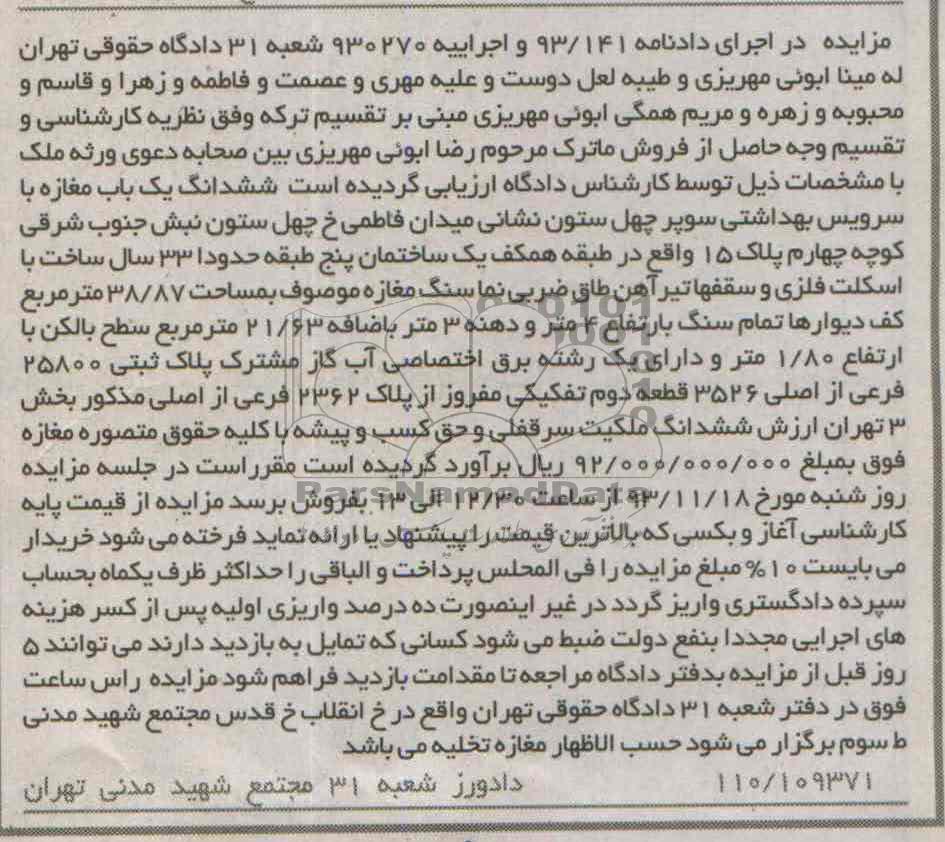 مزایده در اجرای دادنامه ۹۳/۱۴۱ و اجراییه ۹۳۰۲۷۰ شعبه ۳۱ دادگاه حقوقی تهران
له مینا ابوئی مهریزی و طیبه لعل دوست و علیه مهری و عصمت و فاطمه و زهرا و قاسم و
محبوبه و زهره و مریم همگی ابوئی مهریزی مبنی بر تقسیم ترکه وفق نظریه کارشناسی و
تقسیم وجه حاصل از فروش ماترک مرحوم رضا ابوئی مهریزی بین صحابه دعوی ورثه ملک
با مشخصات ذیل توسط کارشناس دادگاه ارزیابی گردیده است ششدانگ یک باب مغازه با
سرویس بهداشتی سوپر چهل ستون نشانی میدان فاطمی خ چهل ستون نبش جنوب شرقی
کوچه چهارم پلاک ۱۵ واقع در طبقه همکف یک ساختمان پنج طبقه حدودا ۳۳ سال ساخت با
اسکلت فلزی و سقفها تیرآهن طاق ضربی نما سنگ مغازه موصوف بمساحت ۳۸/۸۷ مترمربع
کف دیوارها تمام سنگ بارتفاع ۴ متر و دهنه ۳ متر باضافه ۲۱/۶۳ مترمربع سطح بالکن با
ارتفاع ۱/۸۰ متر و دارای یک رشته برق اختصاصی آب گاز مشترک پلاک ثبتی ۲۵۸۰۰
فرعی از اصلی ۳۵۲۶ قطعه دوم تفکیکی مفروز از پلاک ۲۳۶۲ فرعی از اصلی مذکور بخش
۳ تهران ارزش ششدانگ ملکیت سرقفلی و حق کسب و پیشه با کلیه حقوق متصوره مغازه
فوق بمبلغ ۹۲/۰۰۰/۰۰۰/۰۰۰ ریال برآورد گردیده است مقرر است در جلسه مزایده
روز شنبه مورخ ۹۳/۱۱/۱۸ از ساعت ۱۲/۳۰ الی ۱۳ بفروش برسد مزایده از قیمت پایه
کارشناسی آغاز و بکسی که بالاترین قیمت را پیشنهاد یا ارائه نماید فرخته می شود خریدار
می بایست ۱۰% مبلغ مزایده را فی المحلس پرداخت و الباقی را حداکثر ظرف یکماه بحساب
سپرده دادگستری واریز گردد در غیر اینصورت ده درصد واریزی اولیه پس از کسر هزینه
های اجرایی مجددا بنفع دولت ضبط می شود کسانی که تمایل به بازدید دارند می توانند ۵
روز قبل از مزایده بدفتر دادگاه مراجعه تا مقدامت بازدید فراهم شود مزایده راس ساعت
فوق در دفتر شعبه ۳۱ دادگاه حقوقی تهران واقع در خ انقلاب خ قدس مجتمع شهید مدنی
ط سوم برگزار می شود حسب الاظهار مغازه تخلیه می باشد
۱۱۰/۱۰۹۳۷۱ دادورز شعبه ۳۱ مجتمع شهید مدنی تهران
ParsNamadData